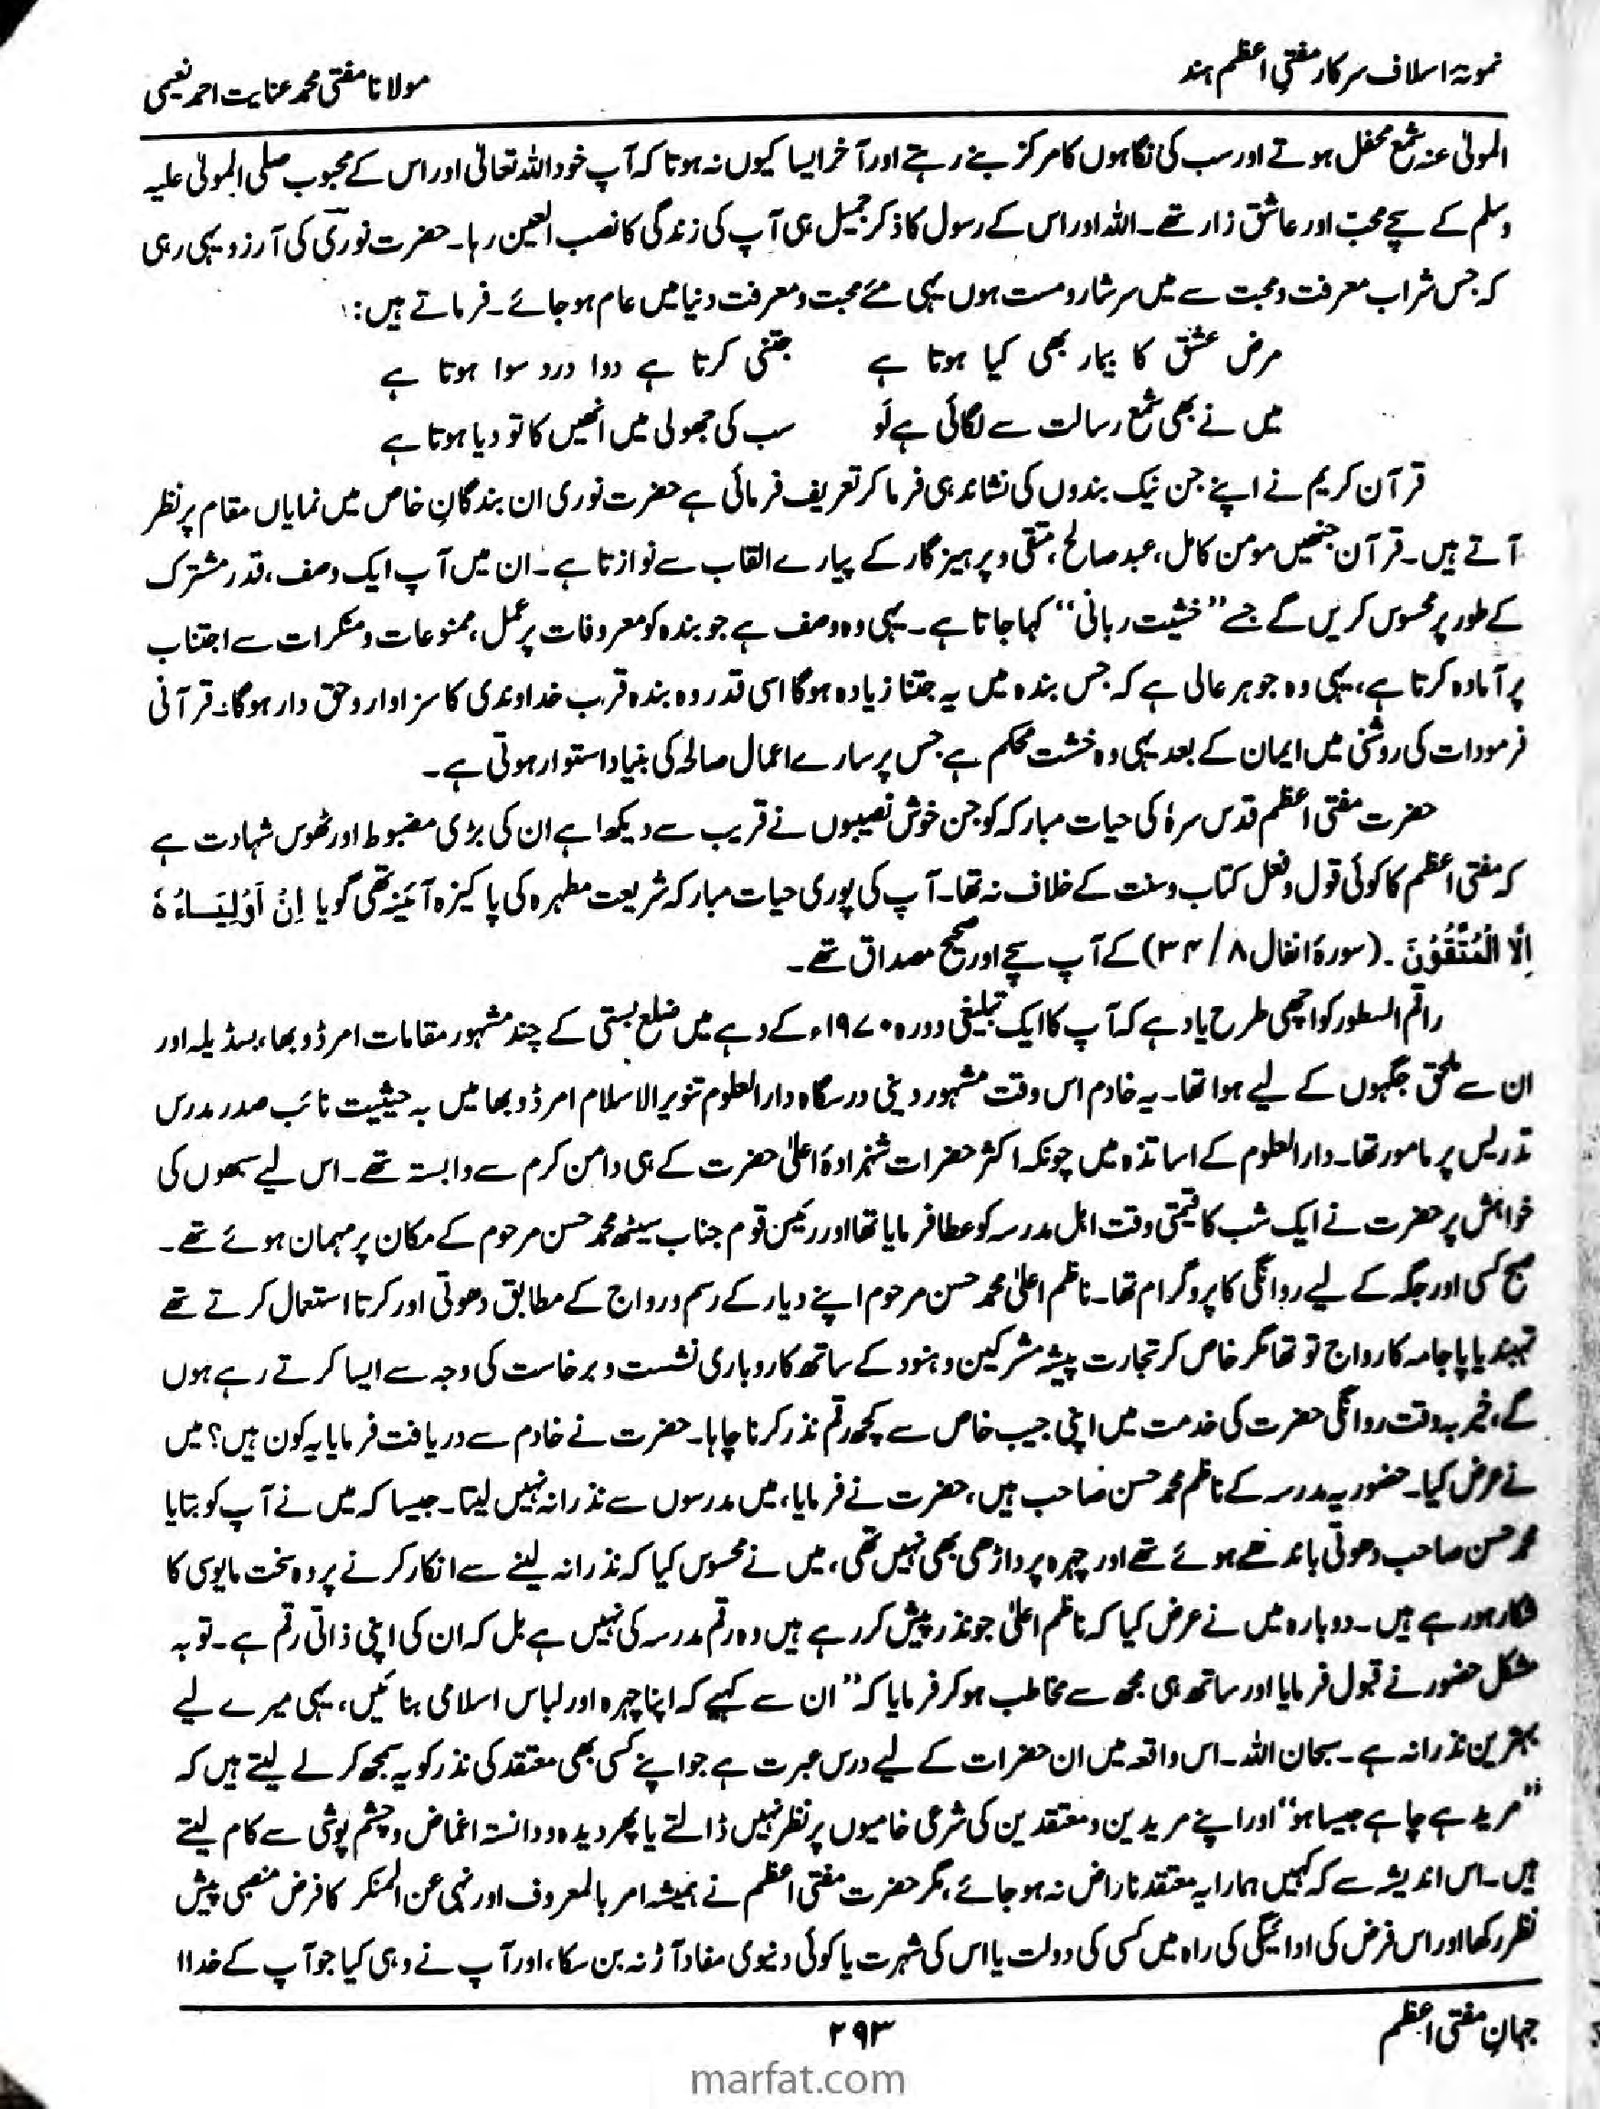 نمونۂ اسلاف سرکار مفتی اعظم ہند
مولانا مفتی محمد عنایت احمد نعیمی
المولیٰ عنہ شمع محفل ہوتے اور سب کی نگاہوں کا مرکز بنے رہتے اور آخر ایسا کیوں نہ ہوتا کہ آپ خود اللہ تعالیٰ اور اس کے محبوب صلی المولیٰ علیہ
وسلم کے سچے محب اور عاشق زار تھے۔ اللہ اور اس کے رسول کا ذکر جمیل ہی آپ کی زندگی کا نصب العین رہا۔ حضرت نوریؔ کی آرزو یہی رہی
کہ جس شراب معرفت و محبت سے میں سرشار و مست ہوں یہی مئے محبت و معرفت دنیا میں عام ہو جائے۔ فرماتے ہیں:
مرض عشق کا بیمار بھی کیا ہوتا ہے جتنی کرتا ہے دوا درد سوا ہوتا ہے
میں نے بھی شمع رسالت سے لگائی ہے لَو سب کی جھولی میں انھیں کا تو دیا ہوتا ہے
قرآن کریم نے اپنے جن نیک بندوں کی نشاندہی فرما کر تعریف فرمائی ہے حضرت نوری ان بندگانِ خاص میں نمایاں مقام پر نظر
آتے ہیں۔ قرآن جنھیں مومن کامل، عبد صالح، متقی و پرہیزگار کے پیارے القاب سے نوازتا ہے۔ ان میں آپ ایک وصف، قدر مشترک
کے طور پر محسوس کریں گے جسے ”خشیت ربانی“ کہا جاتا ہے۔ یہی وہ وصف ہے جو بندہ کو معروفات پر عمل، ممنوعات و منکرات سے اجتناب
پر آمادہ کرتا ہے، یہی وہ جوہر عالی ہے کہ جس بندہ میں یہ جتنا زیادہ ہوگا اسی قدر وہ بندہ قرب خداوندی کا سزاوار و حق دار ہوگا۔ قرآنی
فرمودات کی روشنی میں ایمان کے بعد یہی وہ خشت محکم ہے جس پر سارے اعمال صالحہ کی بنیاد استوار ہوتی ہے۔
حضرت مفتی اعظم قدس سرہٗ کی حیات مبارکہ کو جن خوش نصیبوں نے قریب سے دیکھا ہے ان کی بڑی مضبوط اور ٹھوس شہادت ہے
کہ مفتی اعظم کا کوئی قول و فعل کتاب و سنت کے خلاف نہ تھا۔ آپ کی پوری حیات مبارکہ شریعت مطہرہ کی پاکیزہ آئینہ تھی گویا اِنْ اَوْلِیَـاءُ ہٗ
اِلَّا الْمُتَّقُوْنَ۔ (سورۂ انفال ۸/ ۳۴) کے آپ سچے اور صحیح مصداق تھے۔
راقم السطور کو اچھی طرح یاد ہے کہ آپ کا ایک تبلیغی دورہ ۱۹۷۰ء کے دہے میں ضلع بستی کے چند مشہور مقامات امرڈوبھا، بسڈیلہ اور
ان سے ملحق جگہوں کے لیے ہوا تھا۔ یہ خادم اس وقت مشہور دینی درسگاہ دارالعلوم تنویر الاسلام امرڈوبھا میں بہ حیثیت نائب صدر مدرس
تدریس پر مامور تھا۔ دارالعلوم کے اساتذہ میں چونکہ اکثر حضرات شہزادۂ اعلیٰ حضرت کے ہی دامن کرم سے وابستہ تھے۔ اس لیے سبھوں کی
خواہش پر حضرت نے ایک شب کا قیمتی وقت اہل مدرسہ کو عطا فرمایا تھا اور رئیس قوم جناب سیٹھ محمد حسن مرحوم کے مکان پر مہمان ہوئے تھے۔
صبح کسی اور جگہ کے لیے روانگی کا پروگرام تھا۔ ناظم اعلیٰ محمد حسن مرحوم اپنے دیار کے رسم و رواج کے مطابق دھوتی اور کرتا استعمال کرتے تھے
تہبند یا پاجامہ کا رواج تو تھا مگر خاص کر تجارت پیشہ مشرکین و ہنود کے ساتھ کاروباری نشست و برخاست کی وجہ سے ایسا کرتے رہے ہوں
گے، خیر بہ وقت روانگی حضرت کی خدمت میں اپنی جیب خاص سے کچھ رقم نذر کرنا چاہا۔ حضرت نے خادم سے دریافت فرمایا یہ کون ہیں؟ میں
نے عرض کیا۔ حضور یہ مدرسہ کے ناظم محمد حسن صاحب ہیں، حضرت نے فرمایا، میں مدرسوں سے نذرانہ نہیں لیتا۔ جیسا کہ میں نے آپ کو بتایا
محمد حسن صاحب دھوتی باندھے ہوئے تھے اور چہرہ پر داڑھی بھی نہیں تھی، میں نے محسوس کیا کہ نذرانہ لینے سے انکار کرنے پر وہ سخت مایوسی کا
شکار ہو رہے ہیں۔ دوبارہ میں نے عرض کیا کہ ناظم اعلیٰ جو نذر پیش کر رہے ہیں وہ رقم مدرسہ کی نہیں ہے بل کہ ان کی اپنی ذاتی رقم ہے۔ تو بہ
مشکل حضور نے قبول فرمایا اور ساتھ ہی مجھ سے مخاطب ہو کر فرمایا کہ ”ان سے کہیے کہ اپنا چہرہ اور لباس اسلامی بنائیں، یہی میرے لیے
بہترین نذرانہ ہے۔ سبحان اللہ۔ اس واقعہ میں ان حضرات کے لیے درس عبرت ہے جو اپنے کسی بھی معتقد کی نذر کو یہ سمجھ کر لے لیتے ہیں کہ
”مرید ہے چاہے جیسا ہو“ اور اپنے مریدین و معتقدین کی شرعی خامیوں پر نظر نہیں ڈالتے یا پھر دیدہ و دانستہ اغماض و چشم پوشی سے کام لیتے
ہیں۔ اس اندیشہ سے کہ کہیں ہمارا یہ معتقد ناراض نہ ہو جائے، مگر حضرت مفتی اعظم نے ہمیشہ امر بالمعروف اور نہی عن المنکر کا فرض منصبی پیش
نظر رکھا اور اس فرض کی ادائیگی کی راہ میں کسی کی دولت یا اس کی شہرت یا کوئی دنیوی مفاد آڑ نہ بن سکا، اور آپ نے وہی کیا جو آپ کے خدا اا
جہانِ مفتی اعظم
۲۹۳
marfat.com